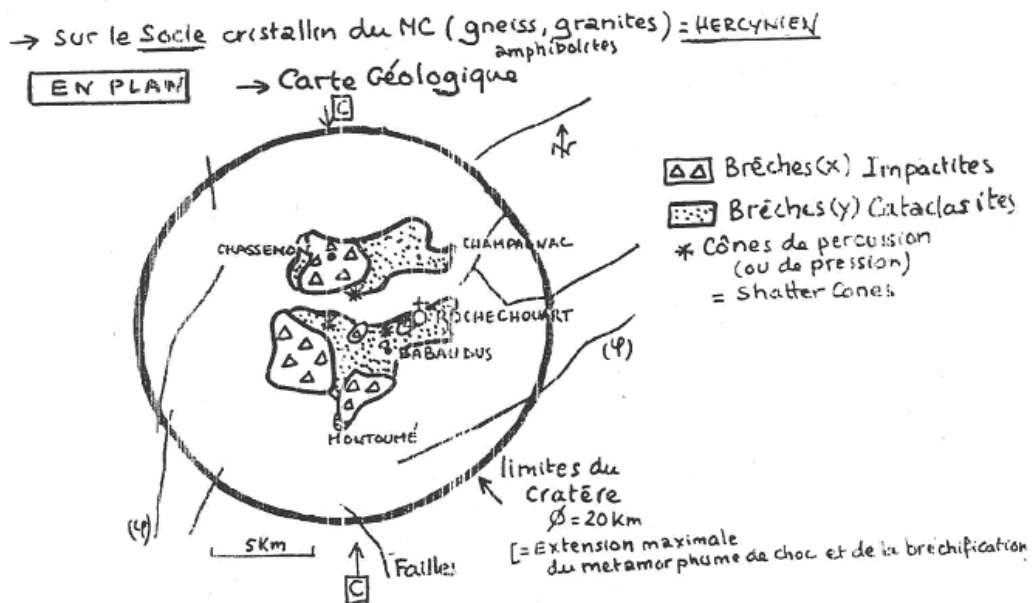 → Sur le Socle cristallin du MC (gneiss, granites) = HERCYNIEN
amphibolites
EN PLAN → Carte Géologique
C
N
△△ Brêches(x) Impactites
Brêches(y) Cataclasites
* Cônes de percussion
(ou de pression)
= Shatter Cones
CHASSENON
CHAMPAGNAC
ROCHECHOUART
BABAUDUS
(φ)
MONTOUMÉ
limites du
Cratère
Ø = 20 Km
[= Extension maximale
du métamorphisme de choc et de la bréchification
(φ)
5 Km
Failles
C